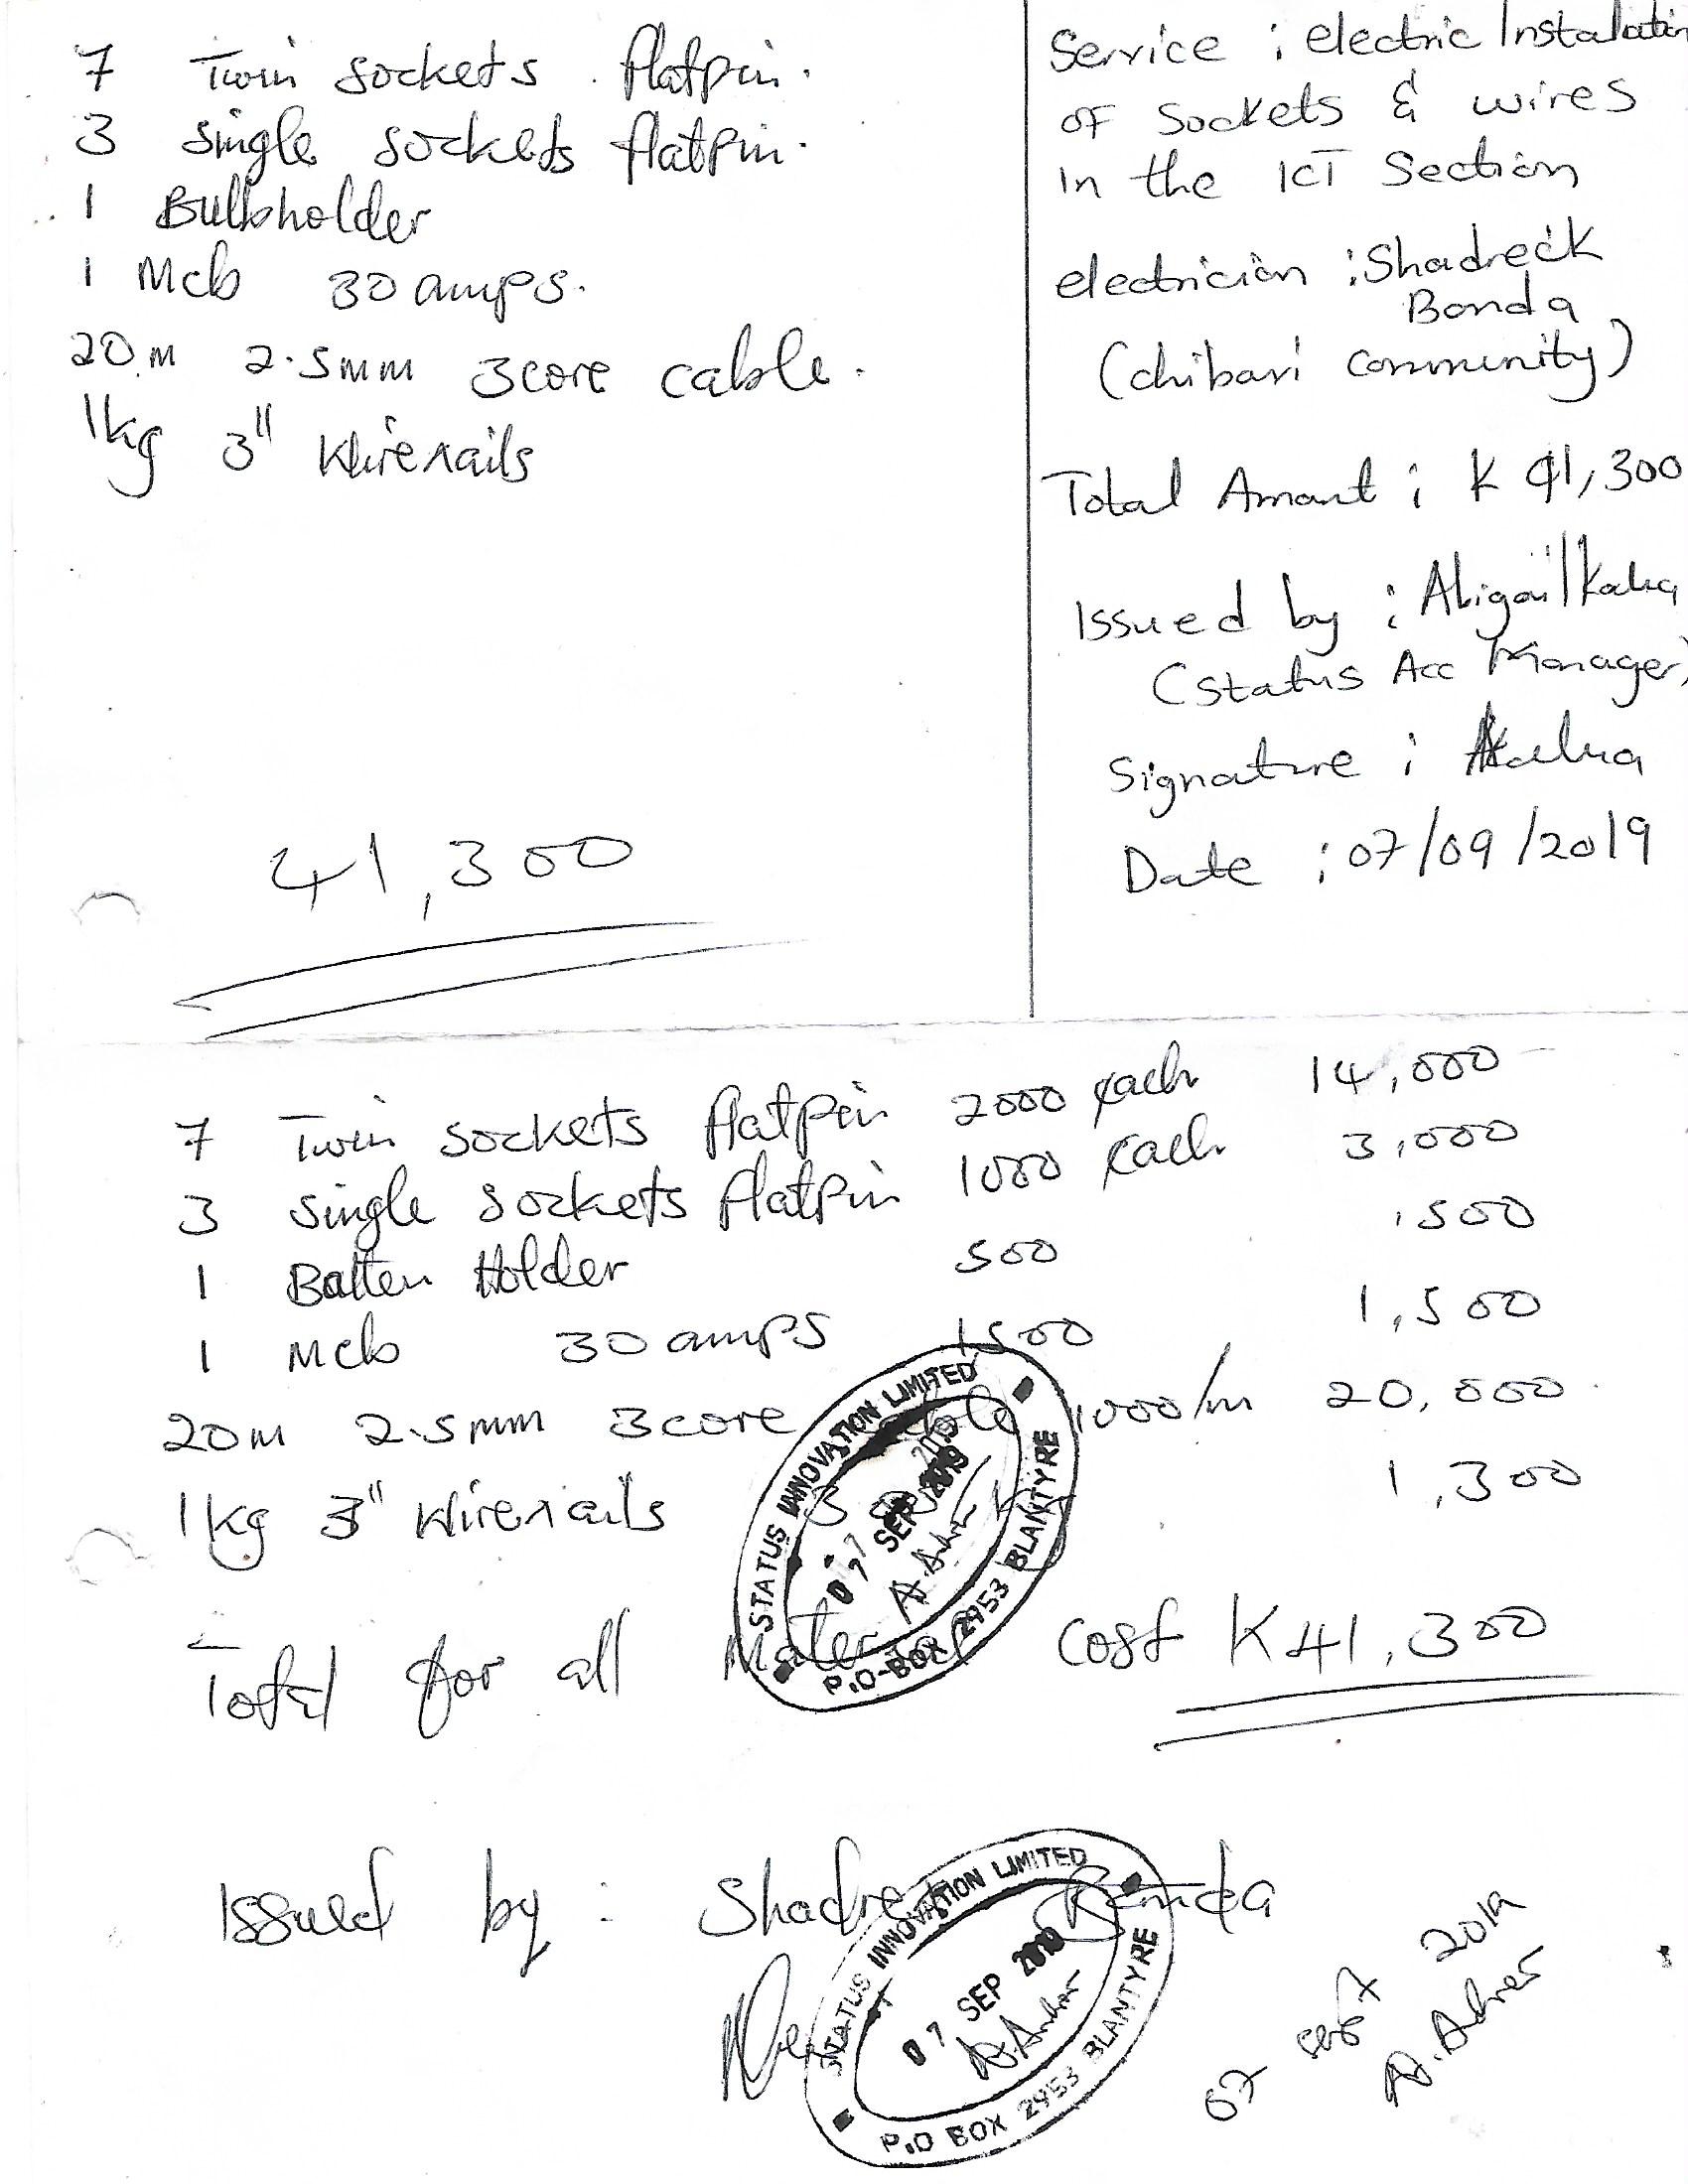 7 Twin sockets flatpin.
3 single sockets flatpin.
1 Bulbholder
1 Mcb 30 amps.
20m 2.5mm 3core cable.
1kg 3" Wirenails
41,300
Service : electric Instalation
of Sockets & wires
In the ICT Section
electrician : Shadreck
Banda
(chibavi community)
Total Amount : K 41,300
Issued by : Abigail Kalua
(Status Acc Manager)
Signature : AKalua
Date : 07/09/2019
7 Twin sockets flatpin 2000 each 14,000
3 Single sockets flatpin 1000 each 3,000
1 Batten Holder 500 ,500
1 Mcb 30 amps 1500 1,500
20m 2.5mm 3core cable 1000/m 20,000
1kg 3" Wirenails 1,300
STATUS INNOVATION LIMITED
07 SEP 2019
P.O-BOX 2953 BLANTYRE
Total for all Material cost K41,300
Issued by : Shadreck Banda
STATUS INNOVATION LIMITED
07 SEP 2019
P.O BOX 2953 BLANTYRE
07 sept 2019